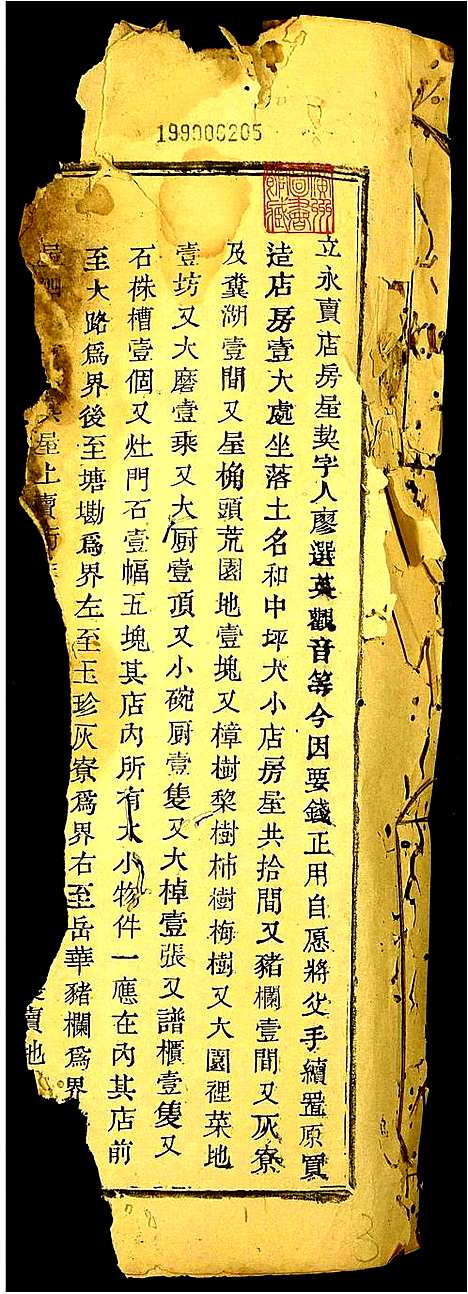 199000205
立永賣店房屋契字人廖選英觀音等今因要錢正用自愿將父手續置原買
造店房壹大處坐落土名和中坪大小店房屋共拾間又豬欄壹間又灰寮
及糞湖壹間又屋桷頭荒園地壹塊又樟樹黎樹柿樹梅樹又大園裡菜地
壹坊又大磨壹乘又大厨壹頂又小碗厨壹隻又大棹壹張又譜櫃壹隻又
石株槽壹個又灶門石壹幅五塊其店內所有大小物件一應在內其店前
至大路爲界後至塘磡爲界左至玉珍灰寮爲界右至岳華豬欄爲界
屋上賣
賣地
3